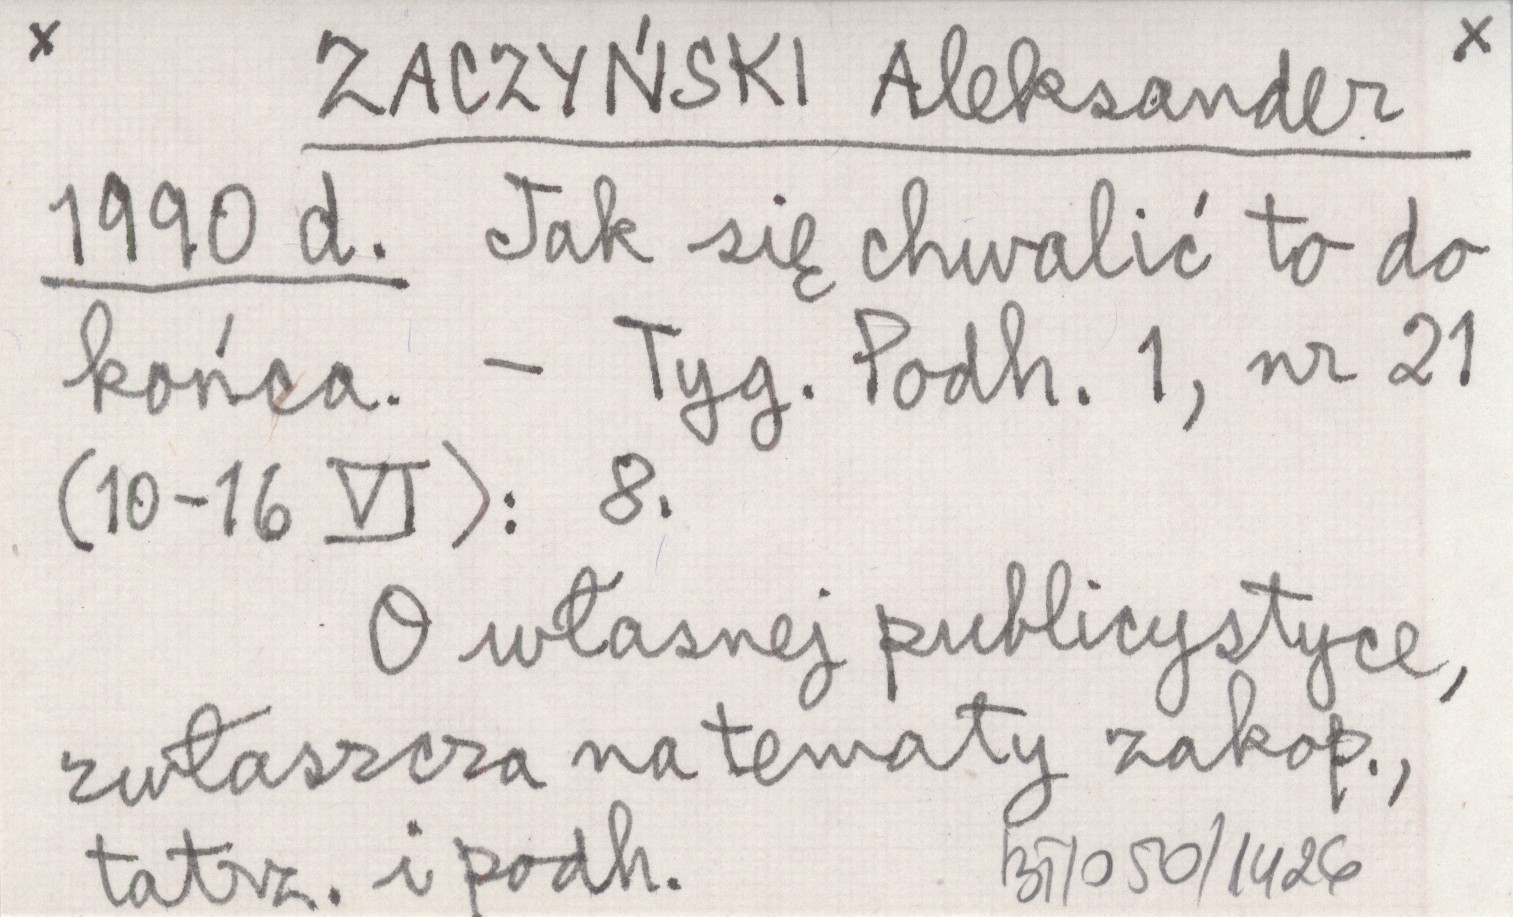 x ZACZYŃSKI Aleksander x
1990 d. Jak się chwalić to do
końca. – Tyg. Podh. 1, nr 21
(10-16 VI): 8.
O własnej publicystyce,
zwłaszcza na tematy zakop.,
tatrz. i podh. BT/050/1426